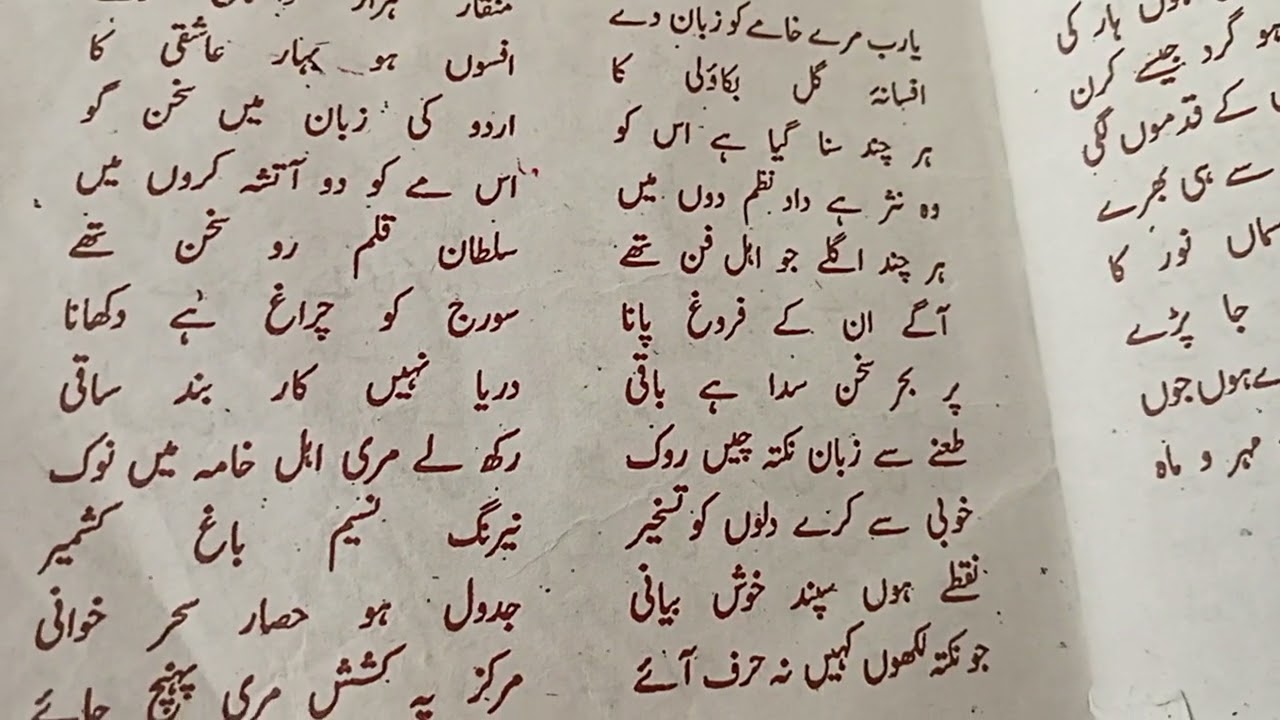 یارب مرے خامے کو زبان دے منقار ہزار
افسانۂ گل بکاؤلی کا افسوں ہو بہار عاشقی کا
ہر چند سنا گیا ہے اس کو اردو کی زبان میں سخن گو
وہ نثر ہے داد نظم دوں میں اس مے کو دو آتشہ کروں میں
ہر چند اگلے جو اہل فن تھے سلطان قلم رو سخن تھے
آگے ان کے فروغ پانا سورج کو چراغ ہے دکھانا
پر بحر سخن سدا ہے باقی دریا نہیں کار بند ساقی
طعنے سے زبان نکتہ چیں روک رکھ لے مری اہل خامہ میں نوک
خوبی سے کرے دلوں کو تسخیر نیرنگ نسیم باغ کشمیر
نقطے ہوں سپند خوش بیانی جدول ہو حصار سحر خوانی
جو نکتہ لکھوں کہیں نہ حرف آئے مرکز پہ کشش مری پہنچ جائے
ہار کی
ہو گرد جیسے کرن
کے قدموں لگی
سے ہی بجرے
نور کا
جا پڑے
ہوں جوں
مہر و ماہ